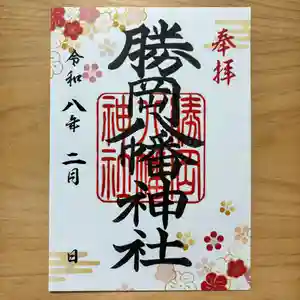 奉拝
勝岡八幡神社
勝岡八幡神社
令和八年二月 日